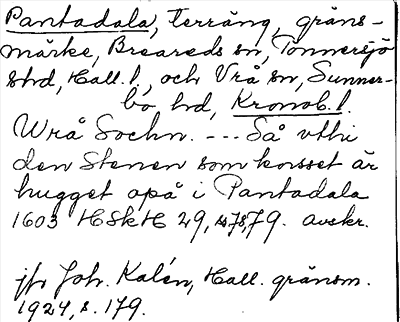 Pantadala, terräng, gräns-
märke, Breareds sn, Tönnersjö
shd, Hall. l., och Vrå sn, Sunner-
bo hd, Kronob. l.
Wrå Sochn. --- Så vthi
den Stenen som korsset är
hugget opå i Pantadala
1603 HSkH 29, s. 78, 79. avskr.
jfr Joh. Kalén, Hall. gränsm.
1924, s. 179.